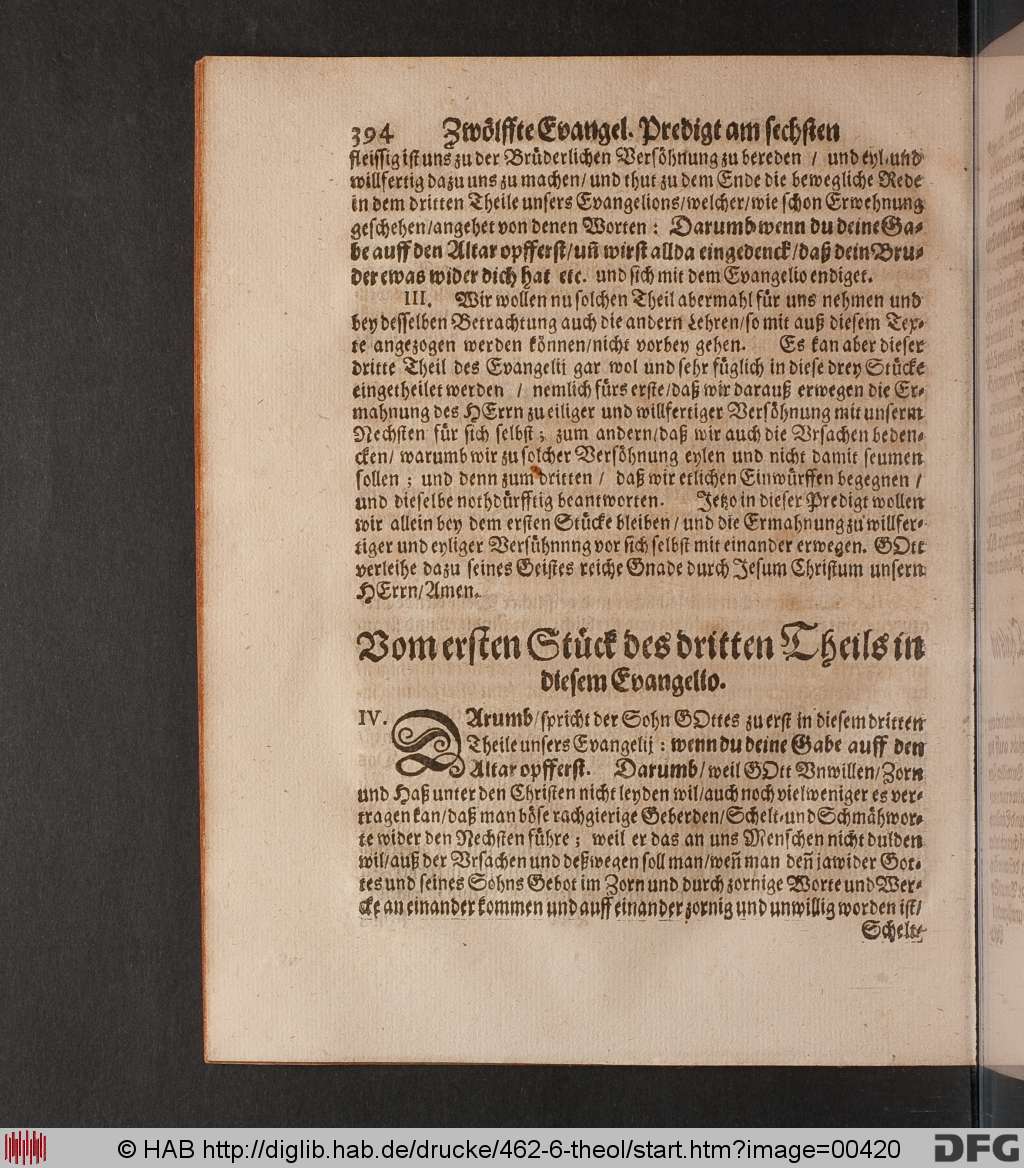 394 Zwölffte Evangel. Predigt am sechsten
fleissig ist uns zu der Brüderlichen Versöhnung zu bereden / und eyl- und
willfertig dazu uns zu machen/ und thut zu dem Ende die bewegliche Rede
in dem dritten Theile unsers Evangelions/welcher/wie schon Erwehnung
geschehen/angehet von denen Worten: Darumb wenn du deine Ga-
be auff den Altar opfferst/uñ wirst allda eingedenck/daß dein Bru-
der ewas wider dich hat etc. und sich mit dem Evangelio endiget.
III. Wir wollen nu solchen Theil abermahl für uns nehmen und
bey desselben Betrachtung auch die andern Lehren/so mit auß diesem Tex-
te angezogen werden können/nicht vorbey gehen. Es kan aber dieser
dritte Theil des Evangelij gar wol und sehr füglich in diese drey Stücke
eingetheilet werden / nemlich fürs erste/daß wir darauß erwegen die Er-
mahnung des HErrn zu eiliger und willfertiger Versöhnung mit unserm
Nechsten für sich selbst; zum andern/daß wir auch die Vrsachen beden-
cken/ warumb wir zu solcher Versöhnung eylen und nicht damit seumen
sollen ; und denn zum dritten / daß wir etlichen Einwürffen begegnen /
und dieselbe nothdürfftig beantworten. Jetzo in dieser Predigt wollen
wir allein bey dem ersten Stücke bleiben / und die Ermahnung zu willfer-
tiger und eyliger Versühnnng vor sich selbst mit einander erwegen. GOtt
verleihe dazu seines Geistes reiche Gnade durch Jesum Christum unsern
HErrn/Amen.
Vom ersten Stück des dritten Theils in
diesem Evangelio.
IV. DArumb/spricht der Sohn GOttes zu erst in diesem dritten
Theile unsers Evangelij: wenn du deine Gabe auff den
Altar opfferst. Darumb/ weil GOtt Vnwillen/Zorn
und Haß unter den Christen nicht leyden wil/auch noch viel weniger es ver-
tragen kan/daß man böse rachgierige Geberden/Schelt- und Schmähwor-
te wider den Nechsten führe ; weil er das an uns Menschen nicht dulden
wil/auß der Vrsachen und deßwegen soll man/weñ man deñ ja wider Got-
tes und seines Sohns Gebot im Zorn und durch zornige Worte und Wer-
cke an einander kommen und auff einander zornig und unwillig worden ist/
Schelt-
© HAB http://diglib.hab.de/drucke/462-6-theol/start.htm?image=00420
DFG